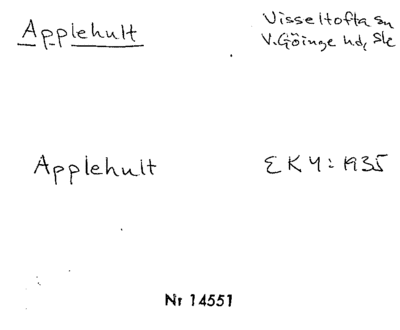 Applehult
Visseltofta sn
V. Göinge hd, Sk
Applehult
EK4: 1935
Nr 14551